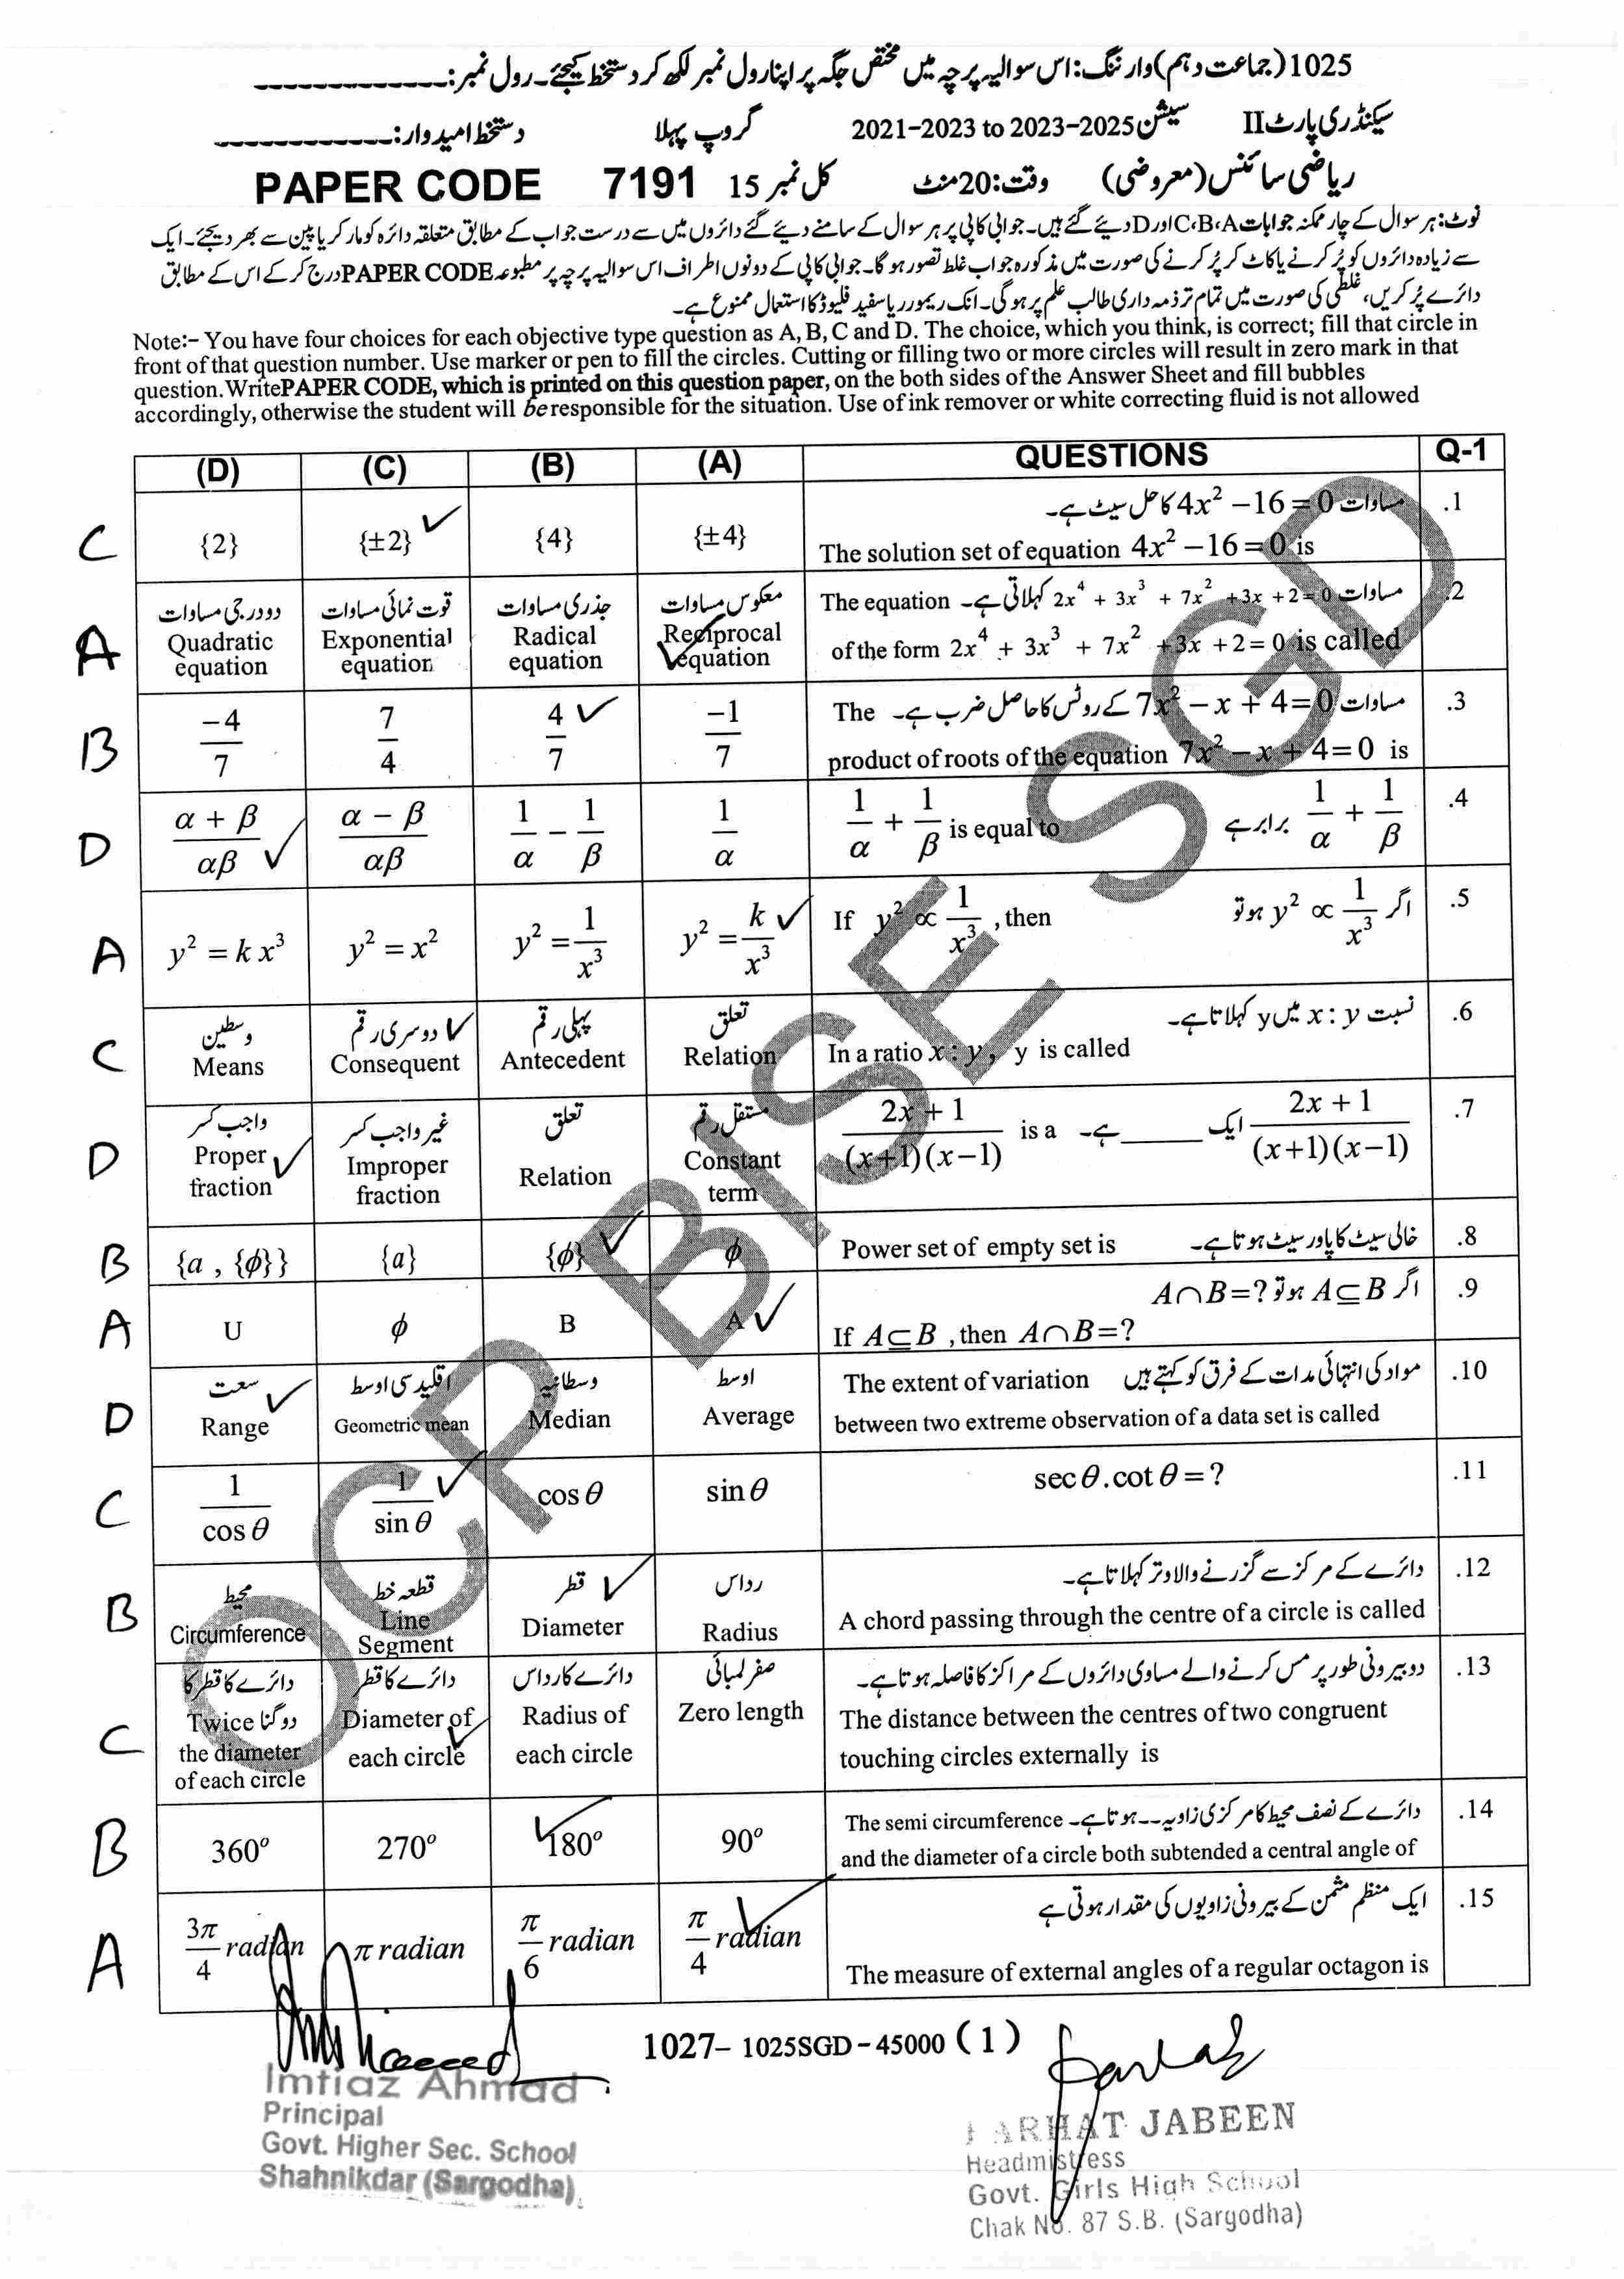 1025(جماعت دہم) وارننگ: اس سوالیہ پرچہ میں مختص جگہ پر اپنا رول نمبر لکھ کر دستخط کیجئے۔ رول نمبر:______________
سیکنڈری پارٹ II سیشن 2021-2023 to 2023-2025 گروپ پہلا دستخط امیدوار:______________
ریاضی سائنس (معروضی) وقت:20 منٹ کل نمبر 15 7191 PAPER CODE
نوٹ: ہر سوال کے چار ممکنہ جوابات A، B، C اور D دیئے گئے ہیں۔ جوابی کاپی پر ہر سوال کے سامنے دیئے گئے دائروں میں سے درست جواب کے مطابق متعلقہ دائرہ کو مارکر یا پین سے بھر دیجئے۔ ایک
سے زیادہ دائروں کو پُر کرنے یا کاٹ کر پُر کرنے کی صورت میں مذکورہ جواب غلط تصور ہو گا۔ جوابی کاپی کے دونوں اطراف اس سوالیہ پرچہ پر مطبوعہ PAPER CODE درج کر کے اس کے مطابق
دائرے پُر کریں، غلطی کی صورت میں تمام تر ذمہ داری طالب علم پر ہو گی۔ انک ریمور ریا سفید فلیوڈ کا استعمال ممنوع ہے۔
Note:- You have four choices for each objective type question as A, B, C and D. The choice, which you think, is correct; fill that circle in
front of that question number. Use marker or pen to fill the circles. Cutting or filling two or more circles will result in zero mark in that
question. Write PAPER CODE, which is printed on this question paper, on the both sides of the Answer Sheet and fill bubbles
accordingly, otherwise the student will be responsible for the situation. Use of ink remover or white correcting fluid is not allowed
(D) (C) (B) (A) QUESTIONS Q-1
مساوات 4x² − 16 = 0 کا حل سیٹ ہے۔ .1
C {2} {±2} ✓ {4} {±4} The solution set of equation 4x² − 16 = 0 is
دو درجی مساوات قوت نمائی مساوات جذری مساوات معکوس مساوات The equation مساوات 2x⁴ + 3x³ + 7x² + 3x + 2 = 0 کہلاتی ہے۔ .2
A Quadratic equation Exponential equation Radical equation Reciprocal equation ✓ of the form 2x⁴ + 3x³ + 7x² + 3x + 2 = 0 is called
B −4/7 7/4 4/7 ✓ −1/7 The مساوات 7x² − x + 4 = 0 کے روٹس کا حاصل ضرب ہے۔ .3
product of roots of the equation 7x² − x + 4 = 0 is
D (α + β)/αβ ✓ (α − β)/αβ 1/α − 1/β 1/α 1/α + 1/β is equal to 1/α + 1/β برابر ہے .4
A y² = k x³ y² = x² y² = 1/x³ y² = k/x³ ✓ If y² ∝ 1/x³ , then اگر y² ∝ 1/x³ ہو تو .5
وسطین دوسری رقم پہلی رقم تعلق نسبت x : y میں y کہلاتا ہے۔ .6
C Means Consequent ✓ Antecedent Relation In a ratio x : y, y is called
واجب کسر غیر واجب کسر تعلق مستقل رقم (2x + 1)/((x+1)(x−1)) is a (2x + 1)/((x+1)(x−1)) ایک ______ ہے۔ .7
D Proper fraction ✓ Improper fraction Relation Constant term
B {a , {ϕ}} {a} {ϕ} ✓ ϕ Power set of empty set is خالی سیٹ کا پاور سیٹ ہوتا ہے۔ .8
اگر A⊆B ہو تو A∩B=? .9
A U ϕ B A ✓ If A⊆B , then A∩B=?
سعت اقلیدسی اوسط وسطانیہ اوسط The extent of variation مواد کی انتہائی مدات کے فرق کو کہتے ہیں .10
D Range ✓ Geometric mean Median Average between two extreme observation of a data set is called
C 1/cos θ 1/sin θ ✓ cos θ sin θ sec θ . cot θ = ? .11
محیط قطعہ خط قطر رداس دائرے کے مرکز سے گزرنے والا وتر کہلاتا ہے۔ .12
B Circumference Line Segment Diameter ✓ Radius A chord passing through the centre of a circle is called
دائرے کا قطر کا دوگنا دائرے کا قطر دائرے کا رداس صفر لمبائی دو بیرونی طور پر مس کرنے والے مساوی دائروں کے مراکز کا فاصلہ ہوتا ہے۔ .13
C Twice the diameter of each circle Diameter of each circle ✓ Radius of each circle Zero length The distance between the centres of two congruent
touching circles externally is
The semi circumference دائرے کے نصف محیط کا مرکزی زاویہ۔۔ ہوتا ہے۔ .14
B 360° 270° 180° ✓ 90° and the diameter of a circle both subtended a central angle of
ایک منظم مثمن کے بیرونی زاویوں کی مقدار ہوتی ہے .15
A 3π/4 radian π radian π/6 radian π/4 radian ✓ The measure of external angles of a regular octagon is
OCP BISE SGD
1027- 1025SGD-45000 (1)
Imtiaz Ahmad
Principal
Govt. Higher Sec. School
Shahnikdar (Sargodha)
FARHAT JABEEN
Headmistress
Govt. Girls High School
Chak No. 87 S.B. (Sargodha)